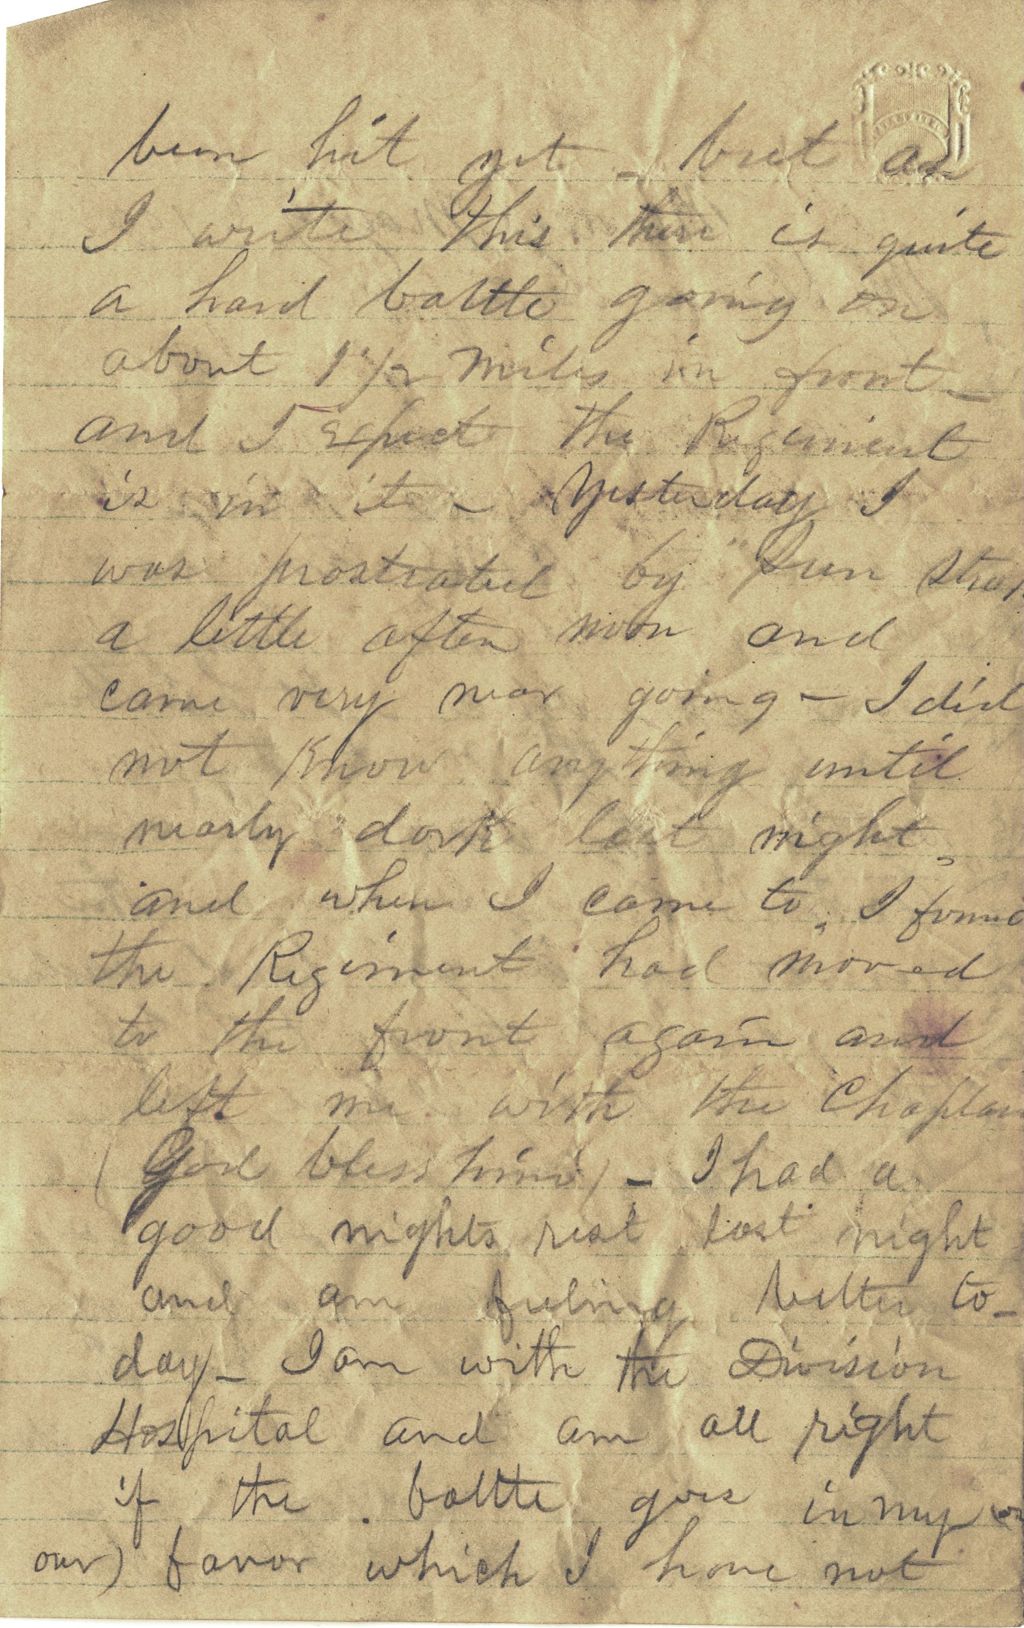 been hit yet - but as
I write this there is quite
a hard battle going on
about 1 1/2 miles in front -
and I Expect the Regiment
is in it - Yesterday I
was prostrated by Sun Strok
a little after noon and
came very near going - I did
not Know anything until
nearly dark last night,
and when I came to, I found
the Regiment had moved
to the front again and
left me with the Chaplain
(God bless him) - I had a
good nights rest last night
and am feeling better to-
day - I am with the Division
Hospital and am all right
if the battle goes in my (or
our) favor which I have not